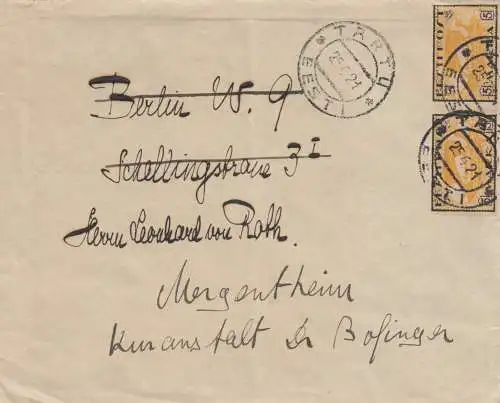 TARTU
EESTI
25.6.21
Berlin W. 9
Schellingstrasse 3 I
Herrn Leonhard von Roth.
Mergentheim
Kuranstalt Dr Bofinger
TARTU
5
5